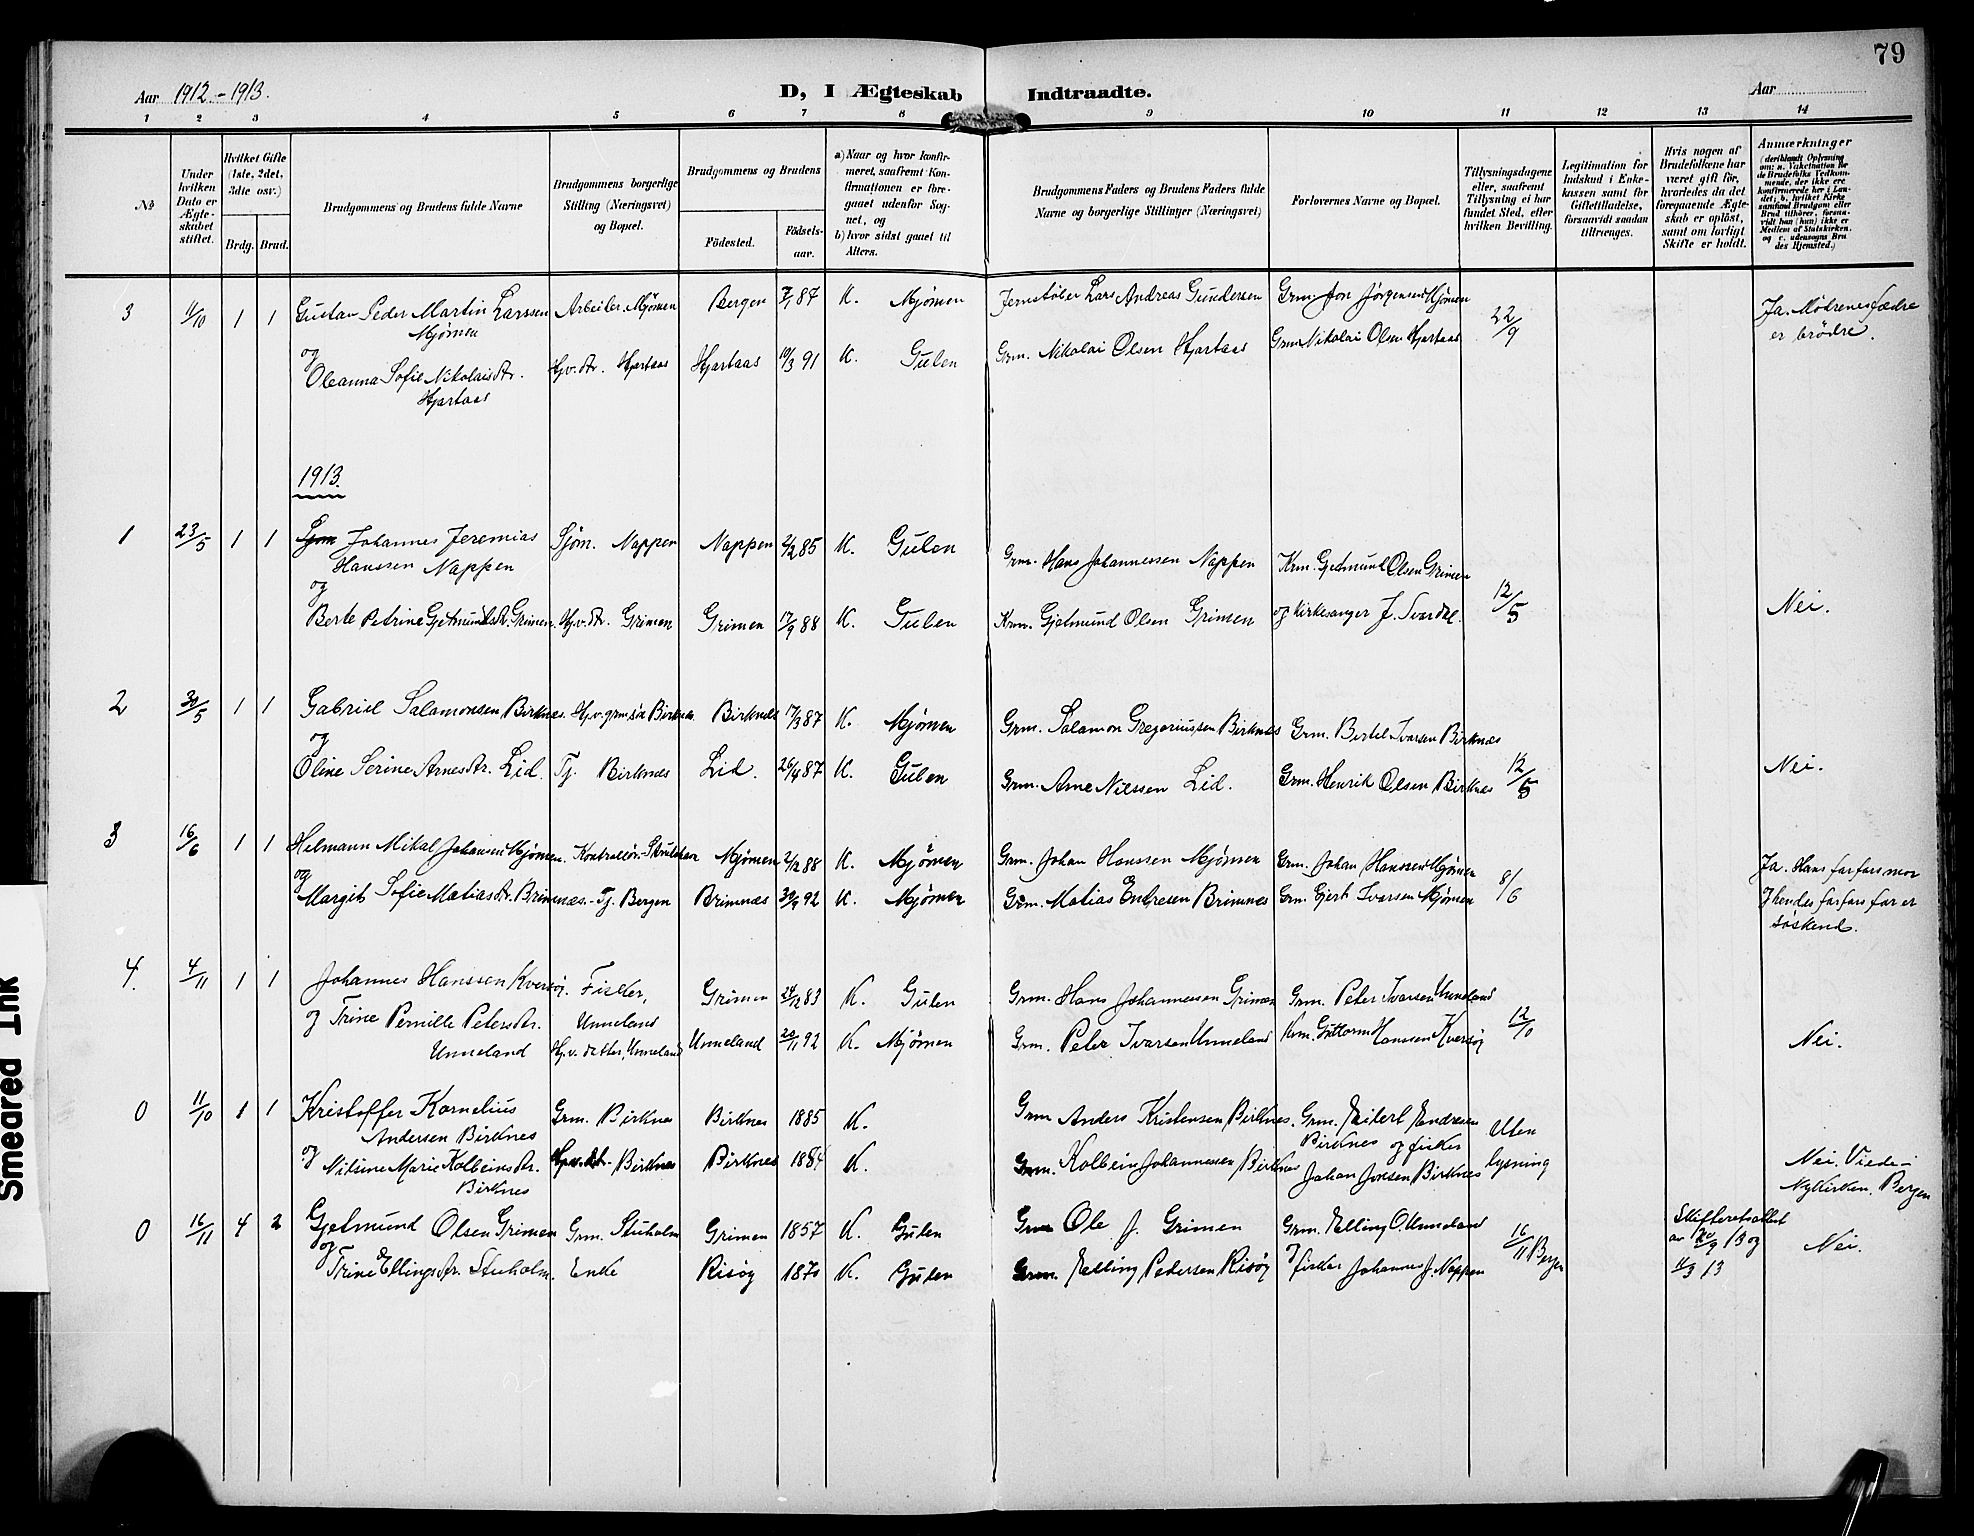 79
Aar 1912-1913.
D, I Ægteskab Indtraadte.
Aar
1 2 3 4 5 6 7 8 9 10 11 12 13 14
№
Under hvilken Dato er Ægteskabet stiftet.
Hvilket Gifte (1ste, 2det, 3die osv.)
Brdg. Brud.
Brudgommens og Brudens fulde Navne
Brudgommens borgerlige Stilling (Næringsvei) og Bopæl.
Brudgommens og Brudens
Fødested. Fødselsaar.
a) Naar og hvor konfirmeret, saafremt Konfirmationen er foregaaet udenfor Sognet, og
b) hvor sidst gaaet til Alters.
Brudgommens Faders og Brudens Faders fulde Navne og borgerlige Stillinger (Næringsvei)
Forlovernes Navne og Bopæl.
Tillysningsdagene eller, saafremt Tillysning ei har fundet Sted, efter hvilken Bevilling.
Legitimation for Indskud i Enkekassen samt for Giftetilladelse, forsaavidt saadan tiltrænges.
Hvis nogen af Brudefolkene har været gift før, hvorledes da det foregaaende Ægteskab er opløst, samt om lovligt Skifte er holdt.
Anmærkninger
(deriblandt Oplysning om: a. Vakcination for de Brudefolks Vedkommende, der ikke ere konfirmerede her i Landet; b. hvilket Kirkesamfund Brudgom eller Brud tilhører, forsaavidt han (hun) ikke er Medlem af Statskirken, og c. udensogns Brudes Hjemsted.)
3 4/10 1 1 Gustav Peder Martin Larssen Arbeider, Mjømen Bergen 7/1 87 K. Mjømen Jernstøber Lars Andreas Gundersen Grm. Jon Jørgensen Mjømen 22/9 Ja. Mødrenes fædre
Mjømen er brødre.
og
Oleanna Sofie Nikolaisdtr. Hjv. dtr. Hjartaas Hjartaas 19/3 91 K. Gulen Grm. Nikolai Olsen Hjartaas Grm Nikolai Olsen Hjartaas
Hjartaas
1913.
1 23/5 1 1 Johannes Jeremias Sjøm. Nappen Nappen 2/2 85 K. Gulen Grm. Hans Johannessen Nappen Krm. Gjetmund Olsen Grimen 12/5
Hanssen Nappen
og
Berte Petrine Gjetmundsdtr. Grimen. Hjv. dtr. Grimen Grimen 17/9 88 K. Gulen Krm. Gjetmund Olsen Grimen og kirkesanger J. Svardal. Nei.
2 30/5 1 1 Gabriel Salamonsen Birknes. Hjv. grm.søn Birknes Birknes 17/3 87 K. Mjømen Grm. Salamon Gregoriussen Birknes Grm. Bertel Ivarsen Birknes
og
Oline Serine Arnesdtr. Lid. Tj. Birknes Lid. 26/4 87 K. Gulen Grm. Arne Nilssen Lid. Grm. Henrik Olsen Birknes 12/5 Nei.
3 16/6 1 1 Helmann Mikal Johansen Mjømen. Mjømen 2/12 88 K. Mjømen Grm. Johan Hanssen Mjømen Grm. Johan Hanssen Mjømen 8/6 Ja. Hans farfars mor
og
Margit Sofie Matiasdtr. Brimnæs. Tj. Bergen Brimnæs 30/9 92 K. Mjømen Grm. Matias Endresen Brimnes Grm. Gjert Ivarsen Mjømen & hendes farfars far er
søskend.
4. 4/11 1 1 Johannes Hanssen Kversøy. Fisker, Grimen 24/12 83 K. Gulen Grm. Hans Johannessen Grimen Grm. Peter Ivarsen Unneland 12/10
Unneland
og Trine Pernille Petersdtr. Hjv. datter, Unneland Unneland 20/11 92 K. Mjømen Grm. Peter Ivarsen Unneland Krm. Guttorm Hanssen Kversøy Nei.
Unneland
0 11/10 1 1 Kristoffer Kornelius Grm. Birknes Birknes 1885 K. Grm Anders Kristensen Birknes. Grm. Eilert Andresen Uten
Andersen Birknes Birknes og fisker lysning
og Nilsine Marie Kolbeinsdtr. Hjv. dtr. Birknes Birknes 1884 K. Grm. Kolbein Johannessen Birknes Johan Jonsen Birknes Nei. Viede i
Birknes Nykirken, Bergen
0 16/11 4 2 Gjetmund Olsen Grimen Grm. Stuholm Grimen 1857 K. Gulen Grm Ole J. Grimen Grm. Elling O. Unneland 16/11 Bergen Skifteretsattest
og av 20/9 13 og Nei.
Trine Ellingsdtr. Stuholm. Enke Risøy 1870 K. Gulen Grm. Elling Pedersen Risøy & fisker Johannes J. Nappen 11/3 13
Smeared Ink